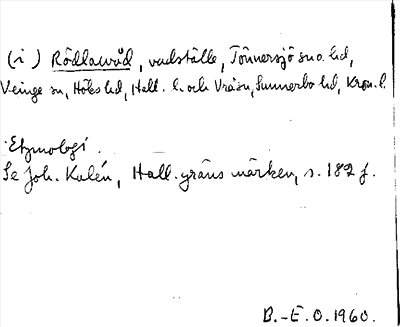 (i) Rödlavad, vadställe, Tönnersjö sn o. hd,
Veinge sn, Höks hd, Hall. l. och Vrå sn, Sunnerbo hd, Kron. l.
Etymologi.
Se Joh. Kalén, Hall. gränsmärken, s. 182 f.
B.-E. O. 1960.